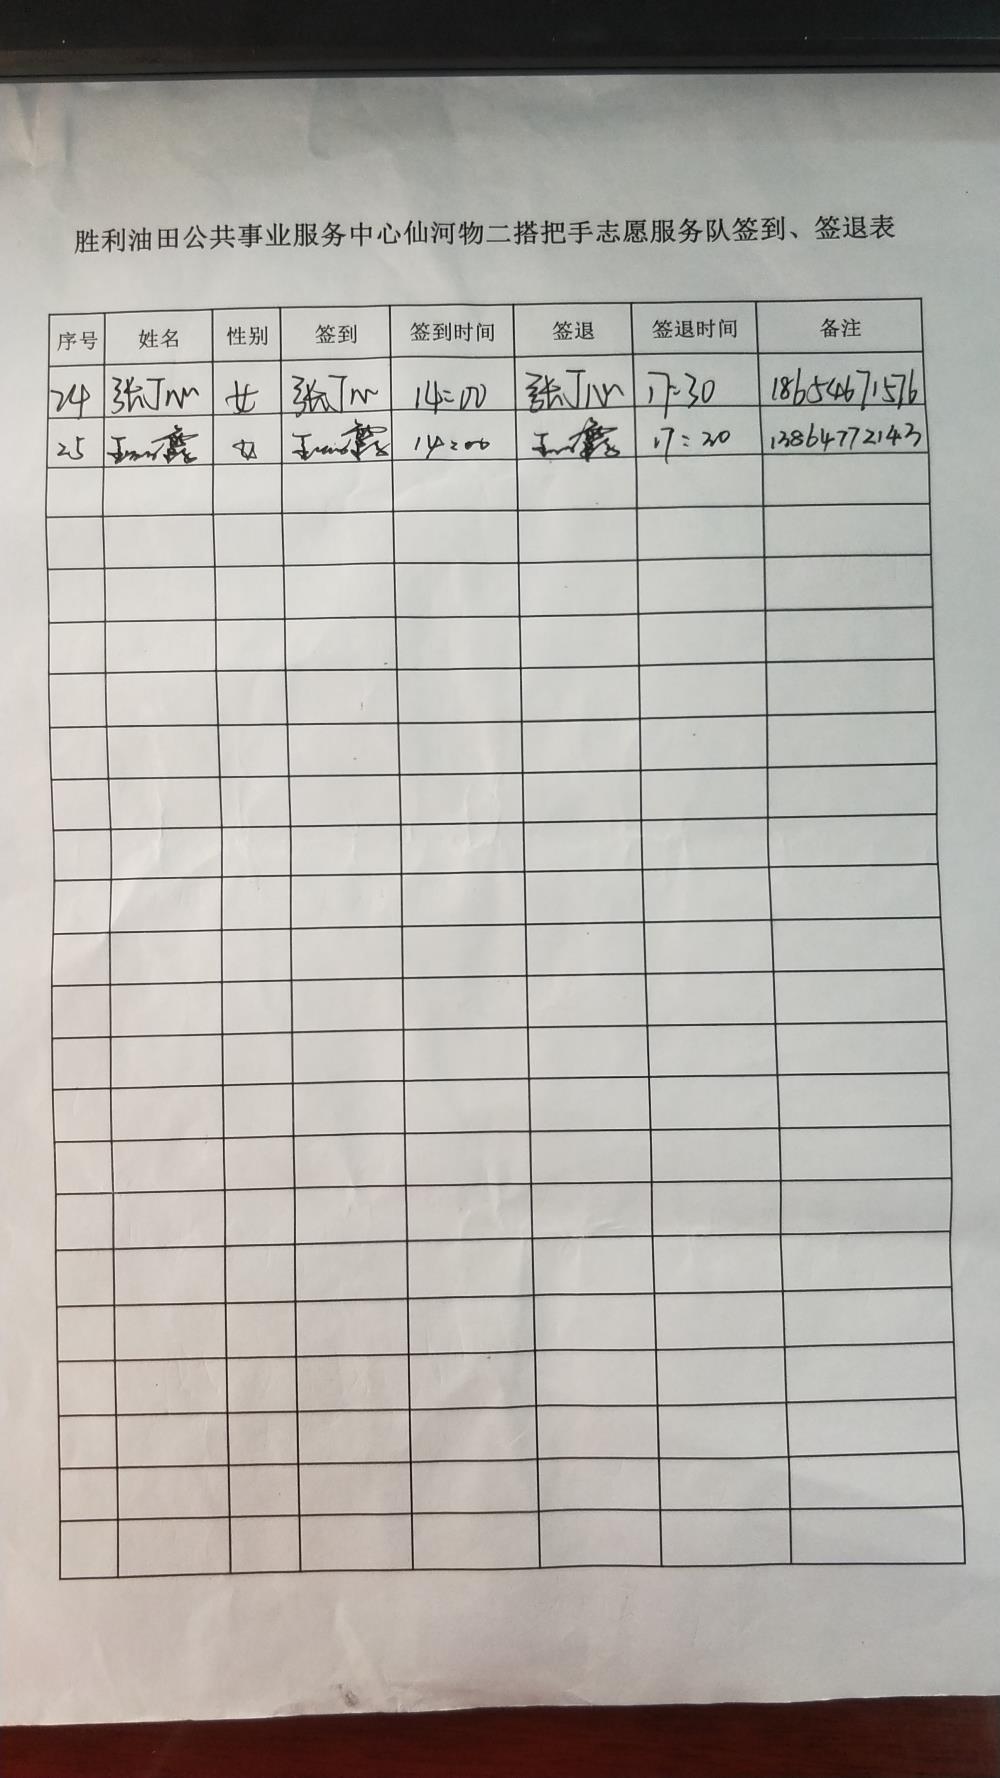 胜利油田公共事业服务中心仙河物二搭把手志愿服务队签到、签退表
序号 姓名 性别 签到 签到时间 签退 签退时间 备注
24 张 女 张 14:00 张 17:30 18654671576
25 王 女 王 14:00 王 17:30 13864772143